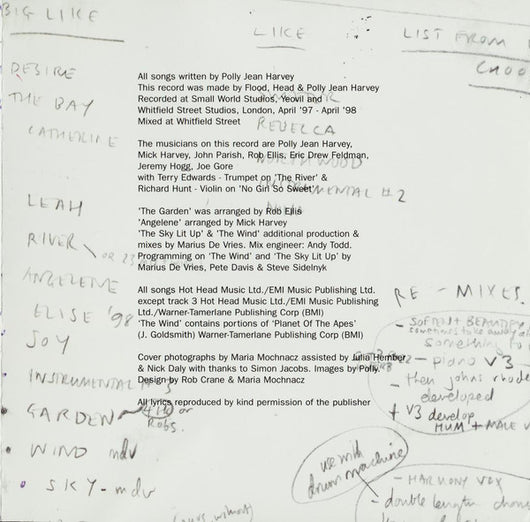 BIG LIKE
LIKE
LIST FROM
CHOO
DESIRE
THE BAY
CATHERINE
LEAH
RIVER
ANGELENE
ELISE '98
JOY
INSTRUMENTAL
GARDEN
or
Robs.
WIND mdv
SKY - mdv
REBECCA
NORTHWOOD
INSTRUMENTAL #2
All songs written by Polly Jean Harvey
This record was made by Flood, Head & Polly Jean Harvey
Recorded at Small World Studios, Yeovil and
Whitfield Street Studios, London, April '97 - April '98
Mixed at Whitfield Street
The musicians on this record are Polly Jean Harvey,
Mick Harvey, John Parish, Rob Ellis, Eric Drew Feldman,
Jeremy Hogg, Joe Gore
with Terry Edwards - Trumpet on 'The River' &
Richard Hunt - Violin on 'No Girl So Sweet'
'The Garden' was arranged by Rob Ellis
'Angelene' arranged by Mick Harvey
'The Sky Lit Up' & 'The Wind' additional production &
mixes by Marius De Vries. Mix engineer: Andy Todd.
Programming on 'The Wind' and 'The Sky Lit Up' by
Marius De Vries, Pete Davis & Steve Sidelnyk
All songs Hot Head Music Ltd./EMI Music Publishing Ltd.
except track 3 Hot Head Music Ltd./EMI Music Publishing
Ltd./Warner-Tamerlane Publishing Corp (BMI)
'The Wind' contains portions of 'Planet Of The Apes'
(J. Goldsmith) Warner-Tamerlane Publishing Corp (BMI)
Cover photographs by Maria Mochnacz assisted by Julia Hember
& Nick Daly with thanks to Simon Jacobs. Images by Polly.
Design by Rob Crane & Maria Mochnacz
All lyrics reproduced by kind permission of the publisher
RE - MIXES
- SOFTEN + BEAUTIFY
something to
- piano V3 -
- then johns rhode
developed
+ V3 develop
HUM + MALE V
use with
drum machine
- HARMONY VOX
- double length
without